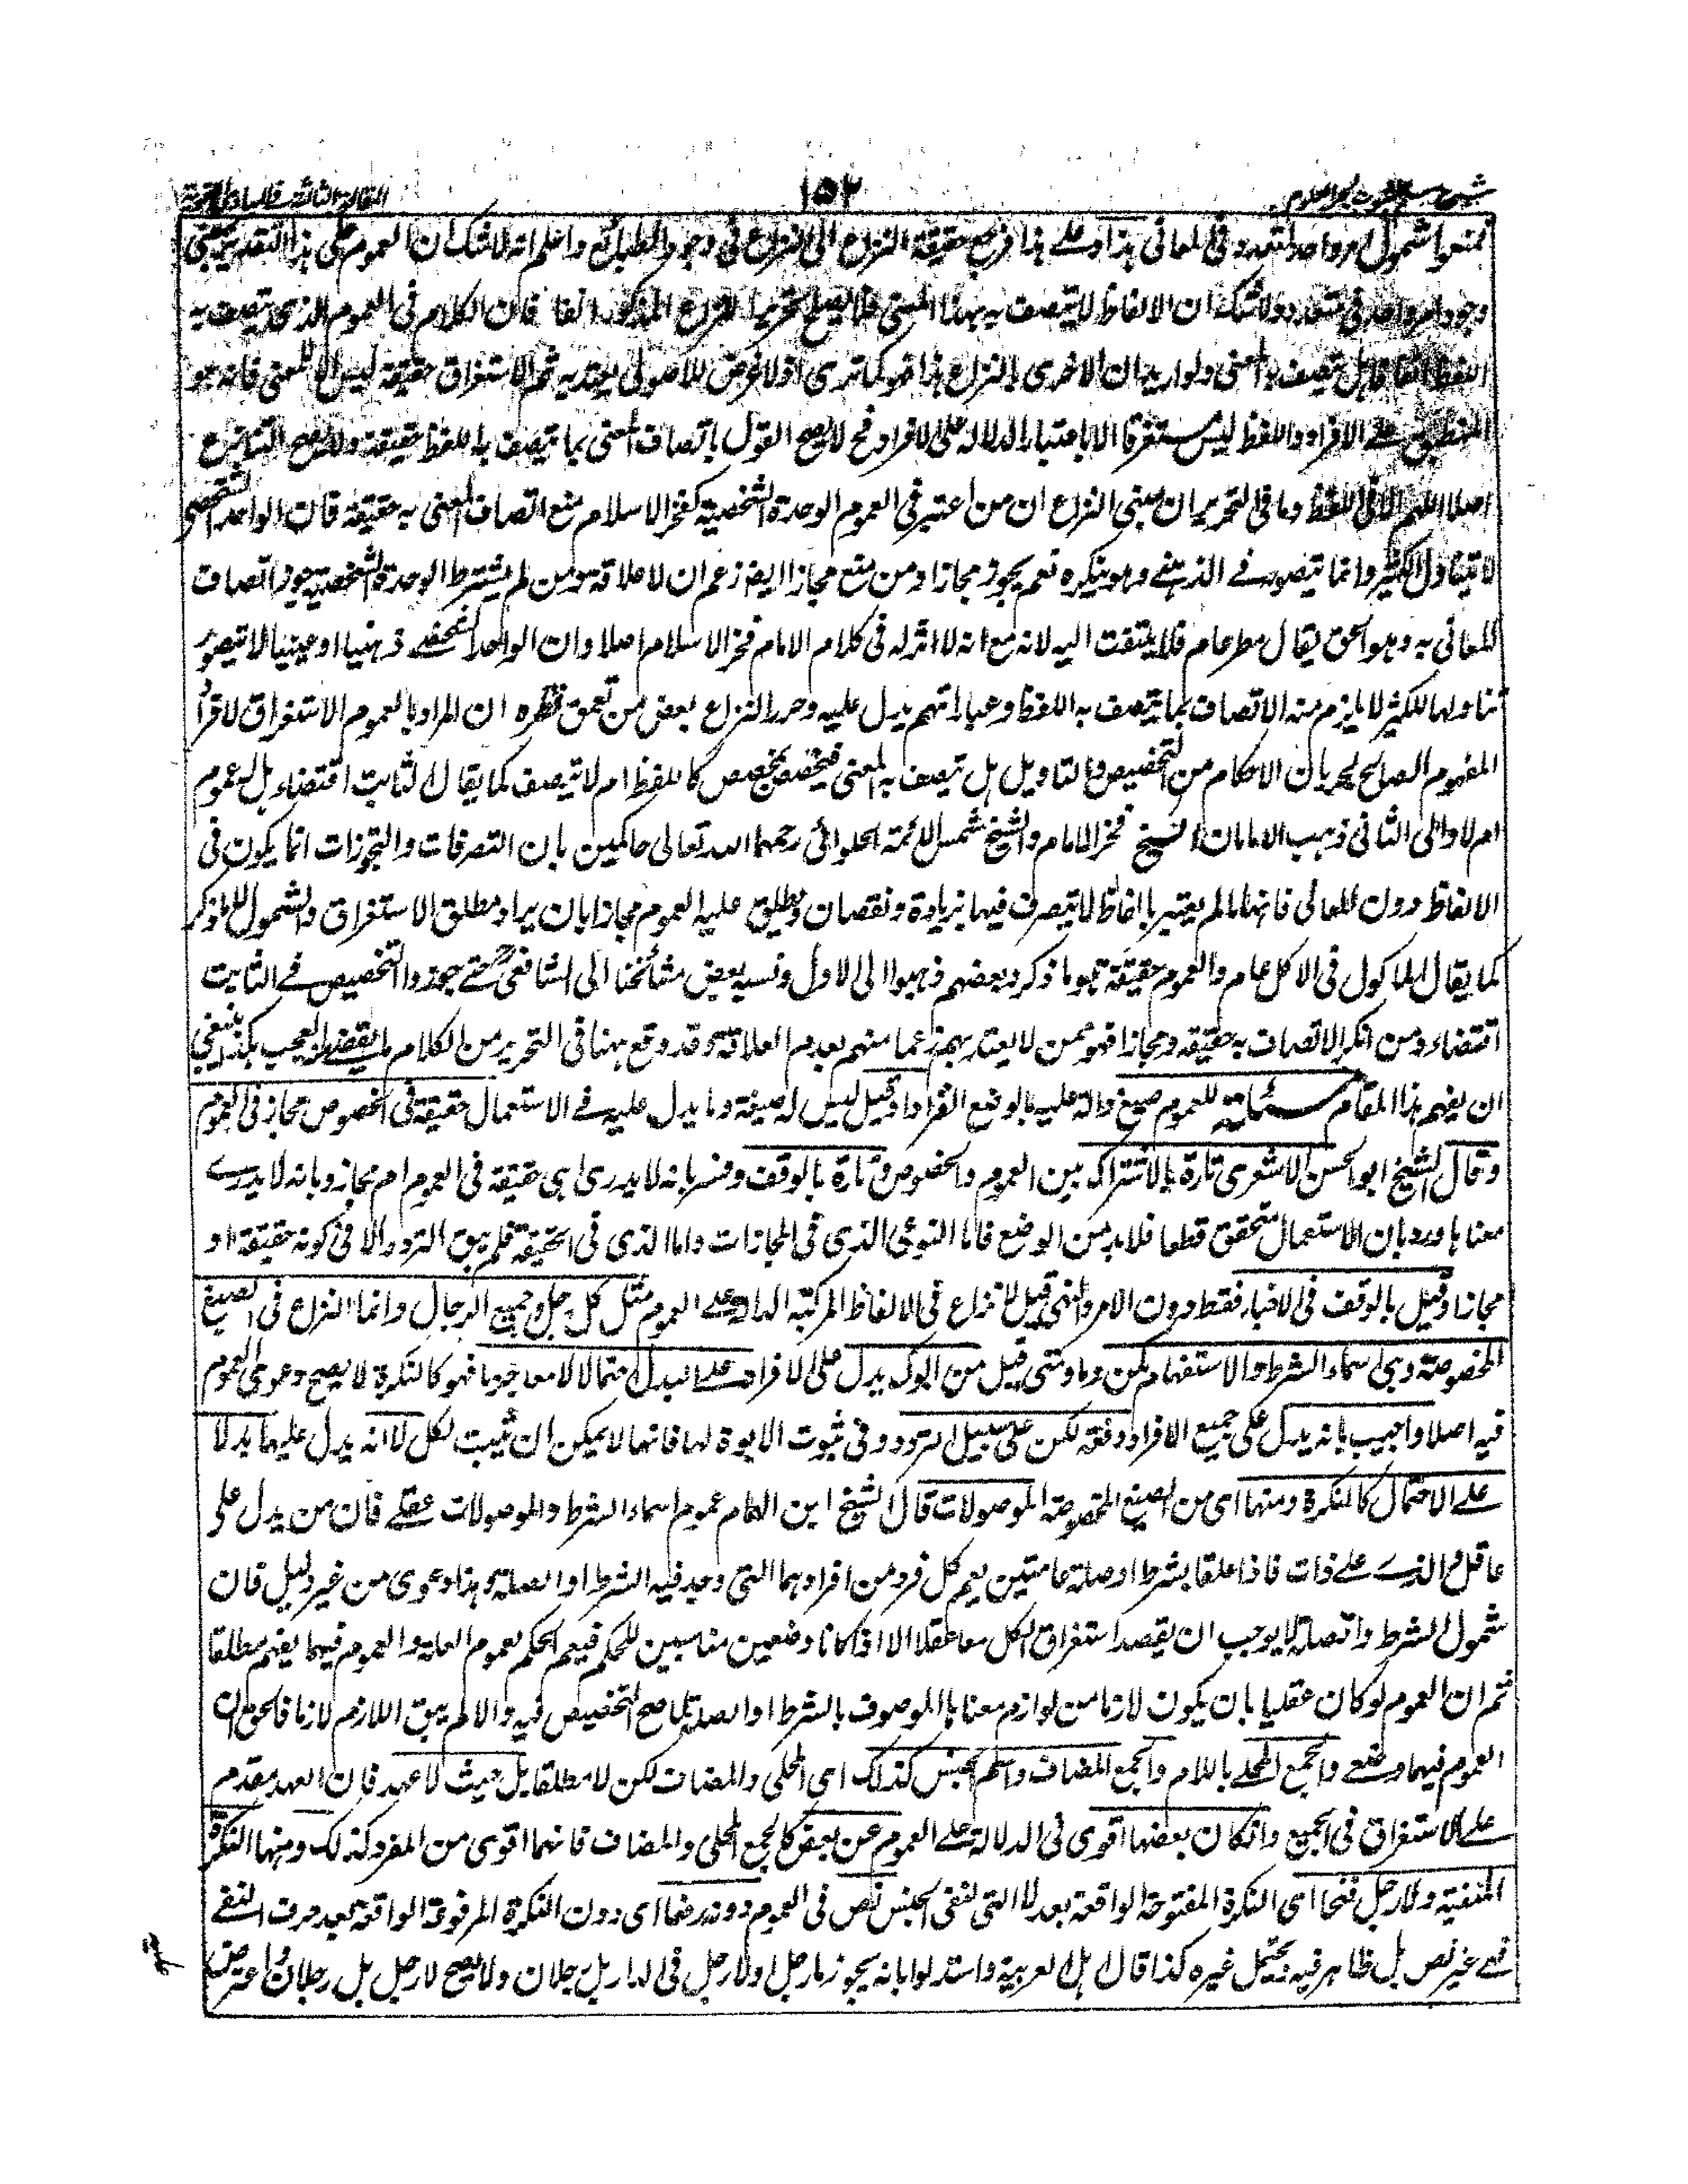 ١٥٢
فمنعوا شمول امر واحد لمتعدد فى المعانى هذا وعلى هذا فرجع حقيقة النزاع الى النزاع فى وجود الطبائع واعلم انه لا شك ان العموم على هذا التقدير بمعنى
وجود امر واحد فى متعدد ولا شك ان الالفاظ لا يتصف به بهذا المعنى فلا يصلح تحريرا للنزاع المذكور انفا فان الكلام فى العموم الذى يتصف به
اللفظ هل يتصف به المعنى ولو اريد ان الاحرى بالنزاع هذا فهو كما ترى اذ لا غرض للاصولى يعتد به ثم الاستغراق حقيقة ليس الا للمعنى فانه هو
المنطبق على الافراد واللفظ ليس مستغرقا الا باعتبار الدلالة على الافراد فح لا يصح القول باتصاف المعنى بما يتصف به اللفظ حقيقة ولا يصح التنازع
اصلا اللهم الا فى اللفظ وما فى التحرير ان مبنى النزاع ان من اعتبر فى العموم الوحدة الشخصية كفخر الاسلام منع اتصاف المعنى به حقيقة فان الواحد الشخصى
لا يتناول الكثير وانما يتصور فى الذهنى وهو ينكره نعم يجوز مجازا ومن منع مجازا ايضا زعم ان لا علاقة ومن لم يشترط الوحدة الشخصية جوز اتصاف
المعانى به وهو الحق يقال مطر عام فلا يلتفت اليه لانه مع انه لا اثر له فى كلام الامام فخر الاسلام اصلا وان الواحد الشخصى ذهنيا او عينيا لا يتصور
تناولها للكثير لا يلزم منه الاتصاف بما يتصف به اللفظ وعباراتهم يدل عليه وحرر النزاع بعض من تعمق نظره ان المراد بالعموم الاستغراق لافراد
المفهوم الصالح لجريان الاحكام من التخصيص والتاويل هل يتصف به المعنى فيخصص بمخصص كاللفظ ام لا يتصف كما يقال الثابت اقتضاء هل له عموم
ام لا والى الثانى ذهب الامامان الشيخ فخر الامام والشيخ شمس الائمة الحلوائى رحمهما الله تعالى حاكمين بان التصرفات والتجوزات انما يكون فى
الالفاظ دون المعانى فانها ما لم يعتبر بالفاظ لا يتصرف فيها بزيادة ونقصان ويطلق عليه العموم مجازا بان يراد مطلق الاستغراق والشمول لما ذكر
كما يقال الماكول فى الاكل عام والعموم حقيقة هو ما ذكر وبعضهم ذهبوا الى الاول ونسبه بعض مشائخنا الى الشافعى حتى جوزوا التخصيص فى الثابت
اقتضاء ومن انكر الاتصاف به حقيقة ومجازا فهو ممن لا يعتد بهم زعما منهم بعدم العلاقة وقد وقع ههنا فى التحرير من الكلام ما يقضى العجب هكذا ينبغى
ان يفهم هذا المقام مسئلة للعموم صيغ دالة عليه بالوضع انفرادا وقيل ليس له صيغة وما يدل عليه فى الاستعمال حقيقة فى الخصوص مجاز فى العموم
وقال الشيخ ابو الحسن الاشعرى تارة بالاشتراك بين العموم والخصوص وتارة بالوقف وفسر بانه لا يدرى اهى حقيقة فى العموم ام مجاز وبانه لا يدرى
معناها ورد بان الاستعمال متحقق قطعا فلا بد من الوضع فاما النوعى الذى فى المجازات واما الذى فى الحقيقة فلم يبق التردد الا فى كونه حقيقة او
مجازا وقيل بالوقف فى الاخبار فقط دون الامر والنهى قيل لا نزاع فى الالفاظ المركبة الدالة على العموم مثل كل رجل وجميع الرجال وانما النزاع فى الصيغ
المخصوصة وهى اسماء الشرط والاستفهام كمن وما ومتى قيل من ابوك يدل على الافراد على البدل احتمالا لا معا جزما فهو كالنكرة لا يصح دعوى العموم
فيه اصلا واجيب بانه يدل على جميع الافراد دفعة لكن على سبيل التردد وفى ثبوت الابوة لها فانها لا يمكن ان يثبت لكل لا انه يدل عليها بدلا
على الاحتمال كالنكرة ومنها اى من الصيغ المخصوصة الموصولات قال الشيخ ابن الهمام عموم اسماء الشرط والموصولات عقلى فان من يدل على
عاقل والذى على ذات فاذا علقا بشرط او صلة عامتين يعم كل فرد من افرادهما التى وجد فيه الشرط او الصلة وهذا دعوى من غير دليل فان
شمول الشرط والصلة لا يوجب ان يقصد استغراق الكل معا عقلا الا اذا كانا وضعيين مناسبين للحكم فيعم الحكم لعموم العلة والعموم فيهما يفهم مطلقا
ثم ان العموم لو كان عقليا بان يكون لازما من لوازم معناها الموصوف بالشرط او الصلة لما صح التخصيص فيه والا لم يبق اللازم لازما فالحق ان
العموم فيهما وضعى والجمع المحلى باللام والجمع المضاف واسم الجنس كذلك اى المحلى والمضاف لكن لا مطلقا بل حيث لا عهد فان العهد مقدم
على الاستغراق فى الجميع وان كان بعضها اقوى فى الدلالة على العموم عن بعض كالجمع المحلى والمضاف فانهما اقوى من المفرد كذلك ومنها النكرة
المنفية ولا رجل فتحا اى النكرة المفتوحة الواقعة بعد لا التى لنفى الجنس نص فى العموم دونه رفعا اى دون النكرة المرفوعة الواقعة بعد حرف النفى
فهى غير نص بل ظاهر فيه يحتمل غيره كذا قال اهل العربية واستدلوا بانه يجوز ما رجل او لا رجل فى الدار بل رجلان ولا يصح لا رجل بل رجلان واعترض